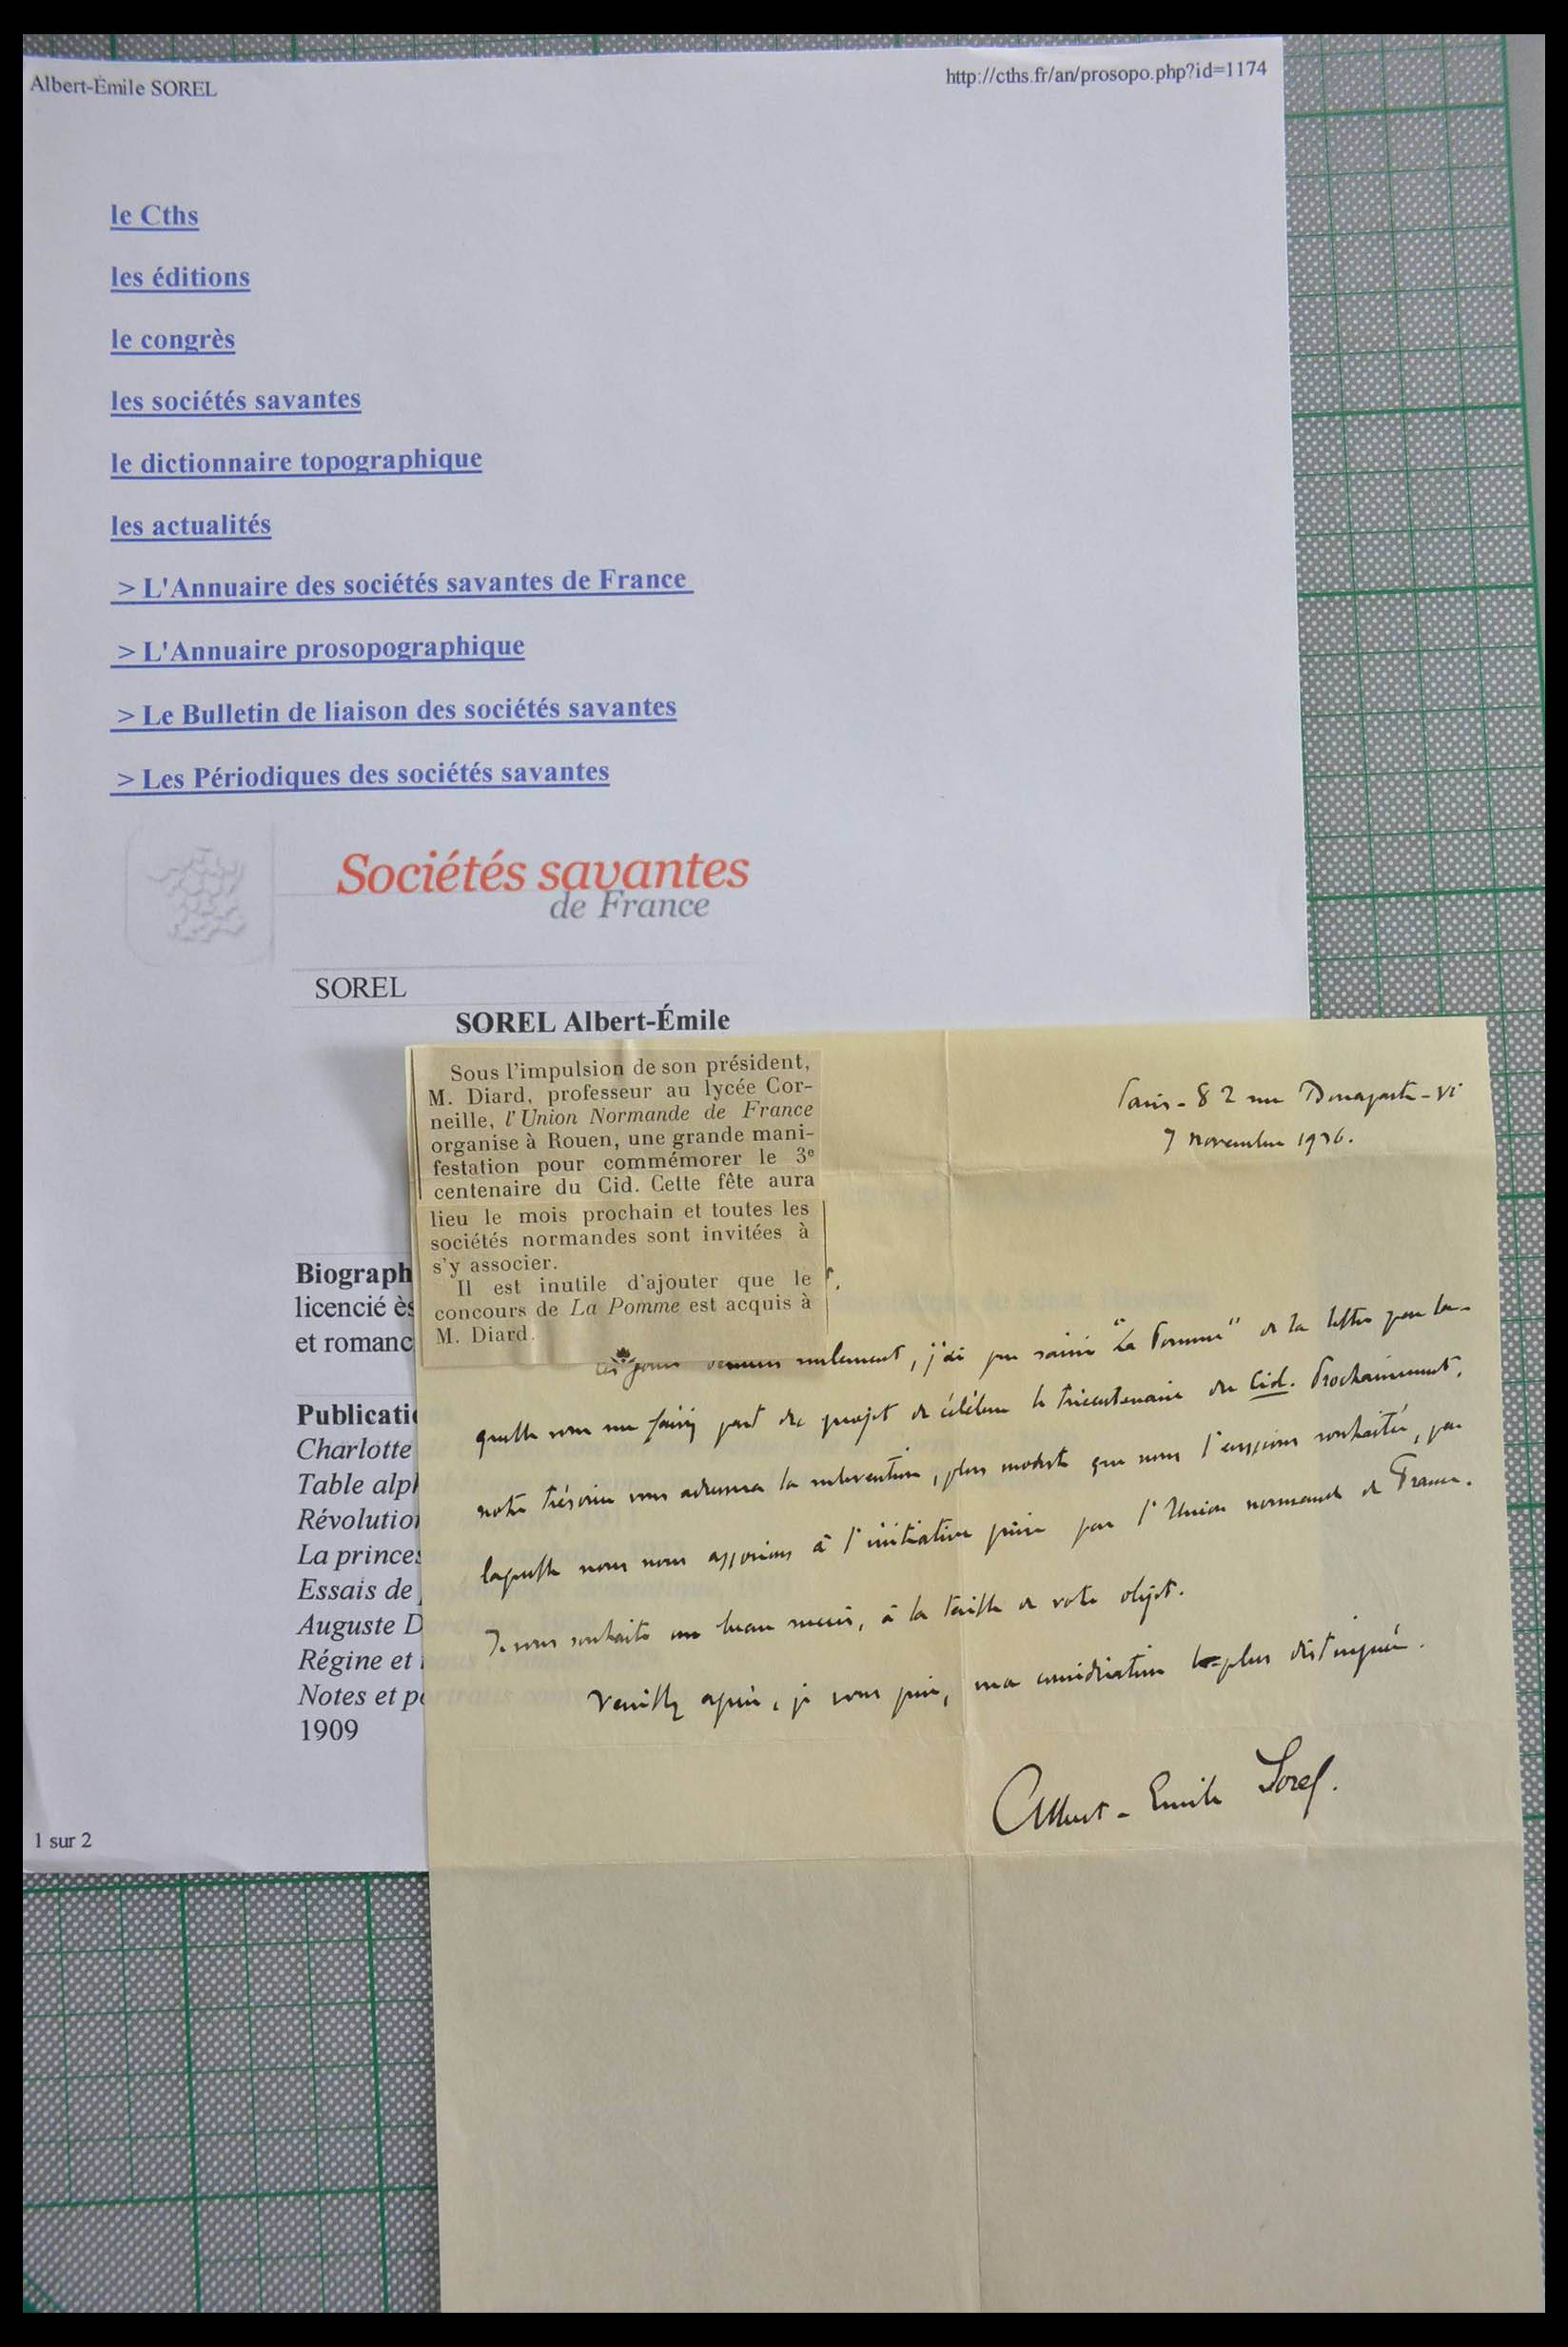 Albert-Émile SOREL
http://cths.fr/an/prosopo.php?id=1174
le Cths
les éditions
le congrès
les sociétés savantes
le dictionnaire topographique
les actualités
> L'Annuaire des sociétés savantes de France
> L'Annuaire prosopographique
> Le Bulletin de liaison des sociétés savantes
> Les Périodiques des sociétés savantes
Sociétés savantes
de France
SOREL
SOREL Albert-Émile
Biograph
licencié ès
et romanc
Publicati
Charlotte
Table alph
Révolution
La princes
Essais de
Auguste D
Régine et
Notes et po
1909
1 sur 2
Sous l'impulsion de son président,
M. Diard, professeur au lycée Cor-
neille, l'Union Normande de France
organise à Rouen, une grande mani-
festation pour commémorer le 3e
centenaire du Cid. Cette fête aura
lieu le mois prochain et toutes les
sociétés normandes sont invitées à
s'y associer.
Il est inutile d'ajouter que le
concours de La Pomme est acquis à
M. Diard.
Paris - 82 rue Bonaparte - VI
7 novembre 1936.
Ces jours derniers seulement, j'ai pu saisir "La Pomme" de la lettre par la-
quelle vous me faisiez part du projet de célébrer le tricentenaire du Cid. Prochainement,
notre trésorier vous adressera la subvention, plus modeste que nous l'eussions souhaitée, par
laquelle nous nous associons à l'initiative prise par l'Union normande de France.
Je vous souhaite un beau succès, à la taille de votre objet.
Veuillez agréer, je vous prie, ma considération la plus distinguée.
Albert-Emile Sorel.